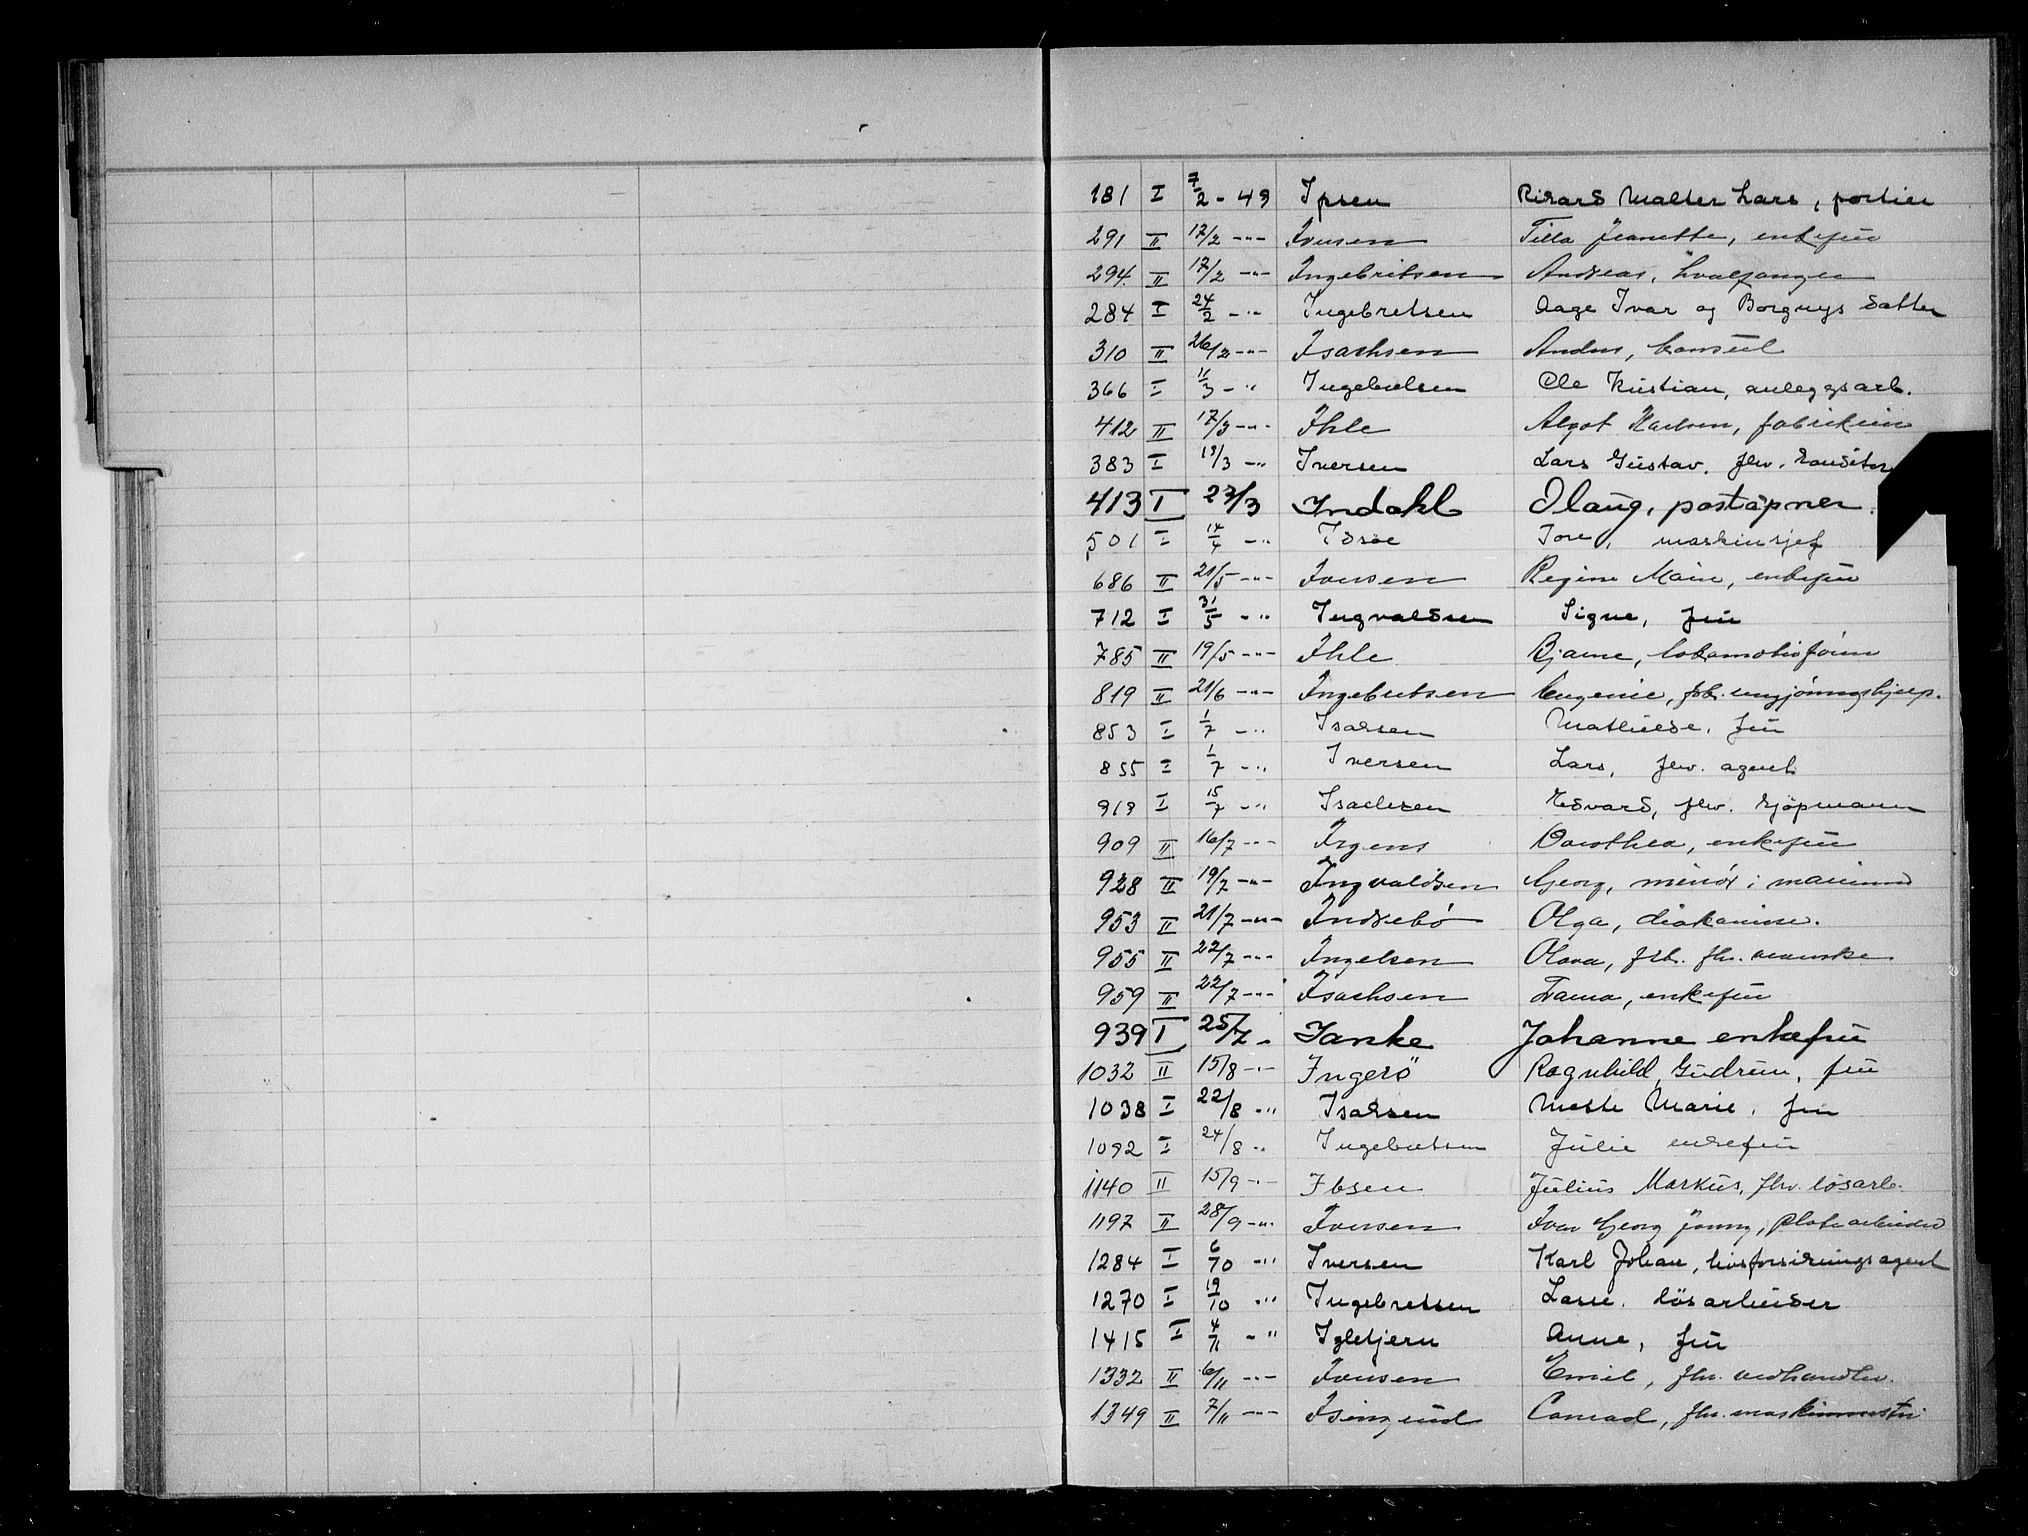 181 I 7/2 - 49 Ipsen Rikard Walter Lars, portier
291 II 17/2 -"- Iversen Tilla Jeanette, enkefru
294. II 17/2 -"- Ingebritsen Andreas, hvalfanger
284 I 24/2 -"- Ingebretsen Aage Ivar og Borgnys datter
310 II 26/2 -"- Isachsen Anders, konsul
366 I 11/3 -" Ingebretsen Ole Kristian, anleggsarb.
412 II 17/3 -"- Ihle Algot Karlsen, fabrikeier
383 I 18/3 -"- Iversen Lars Gustav. fhv. konditor
413 I 23/3 Indahl Olaug, poståpner.
501 I 14/4 -" Idsøe Tore, maskinsjef
686 II 21/5 -"- Iversen Regine Marie, enkefru
712 I 31/5 -" Ingvaldsen Signe, fru
785 II 19/5 -"- Ihle Bjarne, lokomotivfører
819 II 21/6 -"- Ingebretsen Eugenie, frk. rengjøringshjelp.
853 I 1/7 -" Isaksen Mathilde, fru
855 I 1/7 -" Iversen Lars, fhv. agent
919 I 15/7 -" Isachsen Edvard, fhv. kjøpmann
909 II 16/7 -"- Irgens Dorothea, enkefru
928 II 19/7 -"- Ingvaldsen Georg, minør i marinen
953 II 21/7 -"- Indrebö Olga, diakonisse.
955 II 22/7 -"- Ingelsen Olava, frk. fhv.
959 II 22/7 -"- Isachsen enkefru
939 I 25/7 - Janke Johanne enkefru
1032 II 15/8 -"- Ingerö Ragnhild Gudrun, fru
1038 I 22/8 -" Isaksen Mette Marie, fru
1092 I 24/8 " Ingebretsen Julie enkefru
1140 II 15/9 -"- Ibsen Julius Markus, fhv. løsarb.
1197 II 28/9 -"- Iversen Ivar Georg Jonny, platearbeider
1284 I 6/10 -" Iversen Karl Johan, livsforsikringsagent
1270 I 19/10 " Ingebretsen Lasse, løsarbeider
1415 I 4/11 -" Igletjern Anne, fru
1332 II 6/11 -"- Iversen Emil, fhv. vedhandler.
1349 II 7/11 -"- Isingrud Conrad, fhv. maskinmester